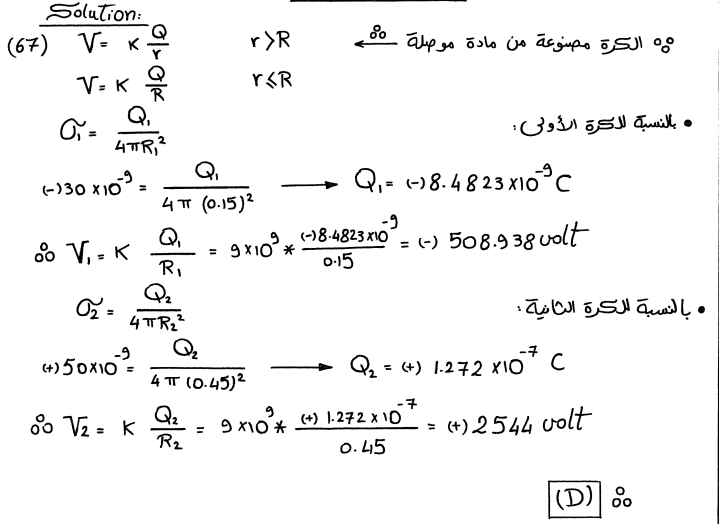 Solution:
(67) V = K Q/r r>R ∵ الكرة مصنوعة من مادة موصلة ∴
V = K Q/R r≤R
σ₁ = Q₁/4πR₁² • بالنسبة للكرة الأولى:
(-)30×10⁻⁹ = Q₁/4π(0.15)² ⟶ Q₁ = (-)8.4823×10⁻⁹ C
∴ V₁ = K Q₁/R₁ = 9×10⁹ * (-)8.4823×10⁻⁹/0.15 = (-) 508.938 volt
σ₂ = Q₂/4πR₂² • بالنسبة للكرة الثانية:
(+)50×10⁻⁹ = Q₂/4π(0.45)² ⟶ Q₂ = (+) 1.272×10⁻⁷ C
∴ V₂ = K Q₂/R₂ = 9×10⁹ * (+) 1.272×10⁻⁷/0.45 = (+) 2544 volt
(D) ∴